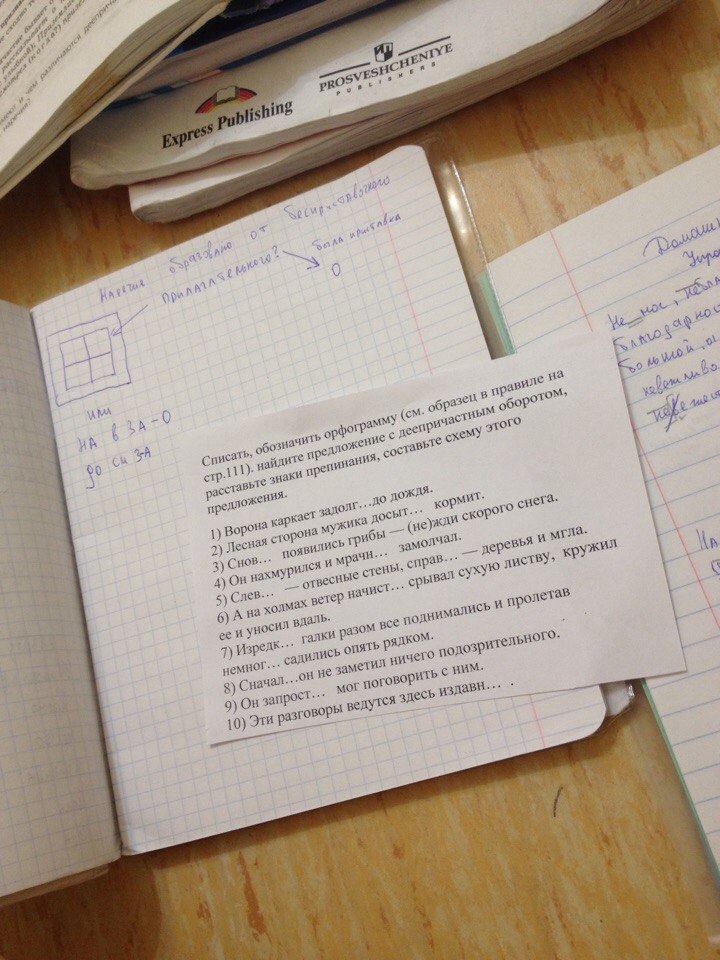 PROSVESHCHENIYE
PUBLISHERS
Express Publishing
и чем различаются дееприча
наречия?
Наречие образовано от бесприставочного
прилагательного?
была приставка
О
или
НА В ЗА - О
ДО С ИЗ - А
Домашн
Упра
благодарнос
большой
На
Списать, обозначить орфограмму (см. образец в правиле на
стр.111). найдите предложение с деепричастным оборотом,
расставьте знаки препинания, составьте схему этого
предложения.
1) Ворона каркает задолг…до дождя.
2) Лесная сторона мужика досыт… кормит.
3) Снов… появились грибы — (не)жди скорого снега.
4) Он нахмурился и мрачн… замолчал.
5) Слев… — отвесные стены, справ… — деревья и мгла.
6) А на холмах ветер начист… срывал сухую листву, кружил
ее и уносил вдаль.
7) Изредк… галки разом все поднимались и пролетав
немног… садились опять рядком.
8) Сначал…он не заметил ничего подозрительного.
9) Он запрост… мог поговорить с ним.
10) Эти разговоры ведутся здесь издавн… .